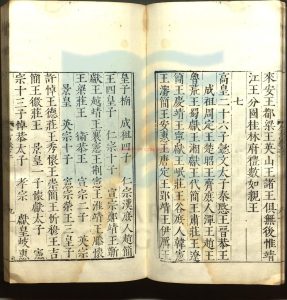 來安王都梁王英山王諸王俱無後惟靖
江王分國桂林府禮數如親王
七
高皇二十六子懿文太子秦愍王晉恭王
成祖周定王楚昭王齊庶人潭王趙王
魯荒王蜀獻王湘獻王代簡王肅莊王遼
簡王慶靖王寧獻王岷莊王谷庶人韓憲
王瀋簡王安惠王唐定王郢靖王伊厲王
皇子楠 成祖四子 仁宗漢庶人趙簡
王四皇子 仁宗十子 宣宗鄭靖王
獻王越靖王襄憲王荊憲王淮靖王滕懷
王梁莊王衛恭王 宣宗二子 英宗
景皇 英宗十子 憲宗榮王三皇子
許悼王德莊王秀懷王崇簡王忻穆王吉
簡王徽莊王 景皇一子懷獻太子 憲
宗十三子悼恭太子 孝宗 獻皇岐惠